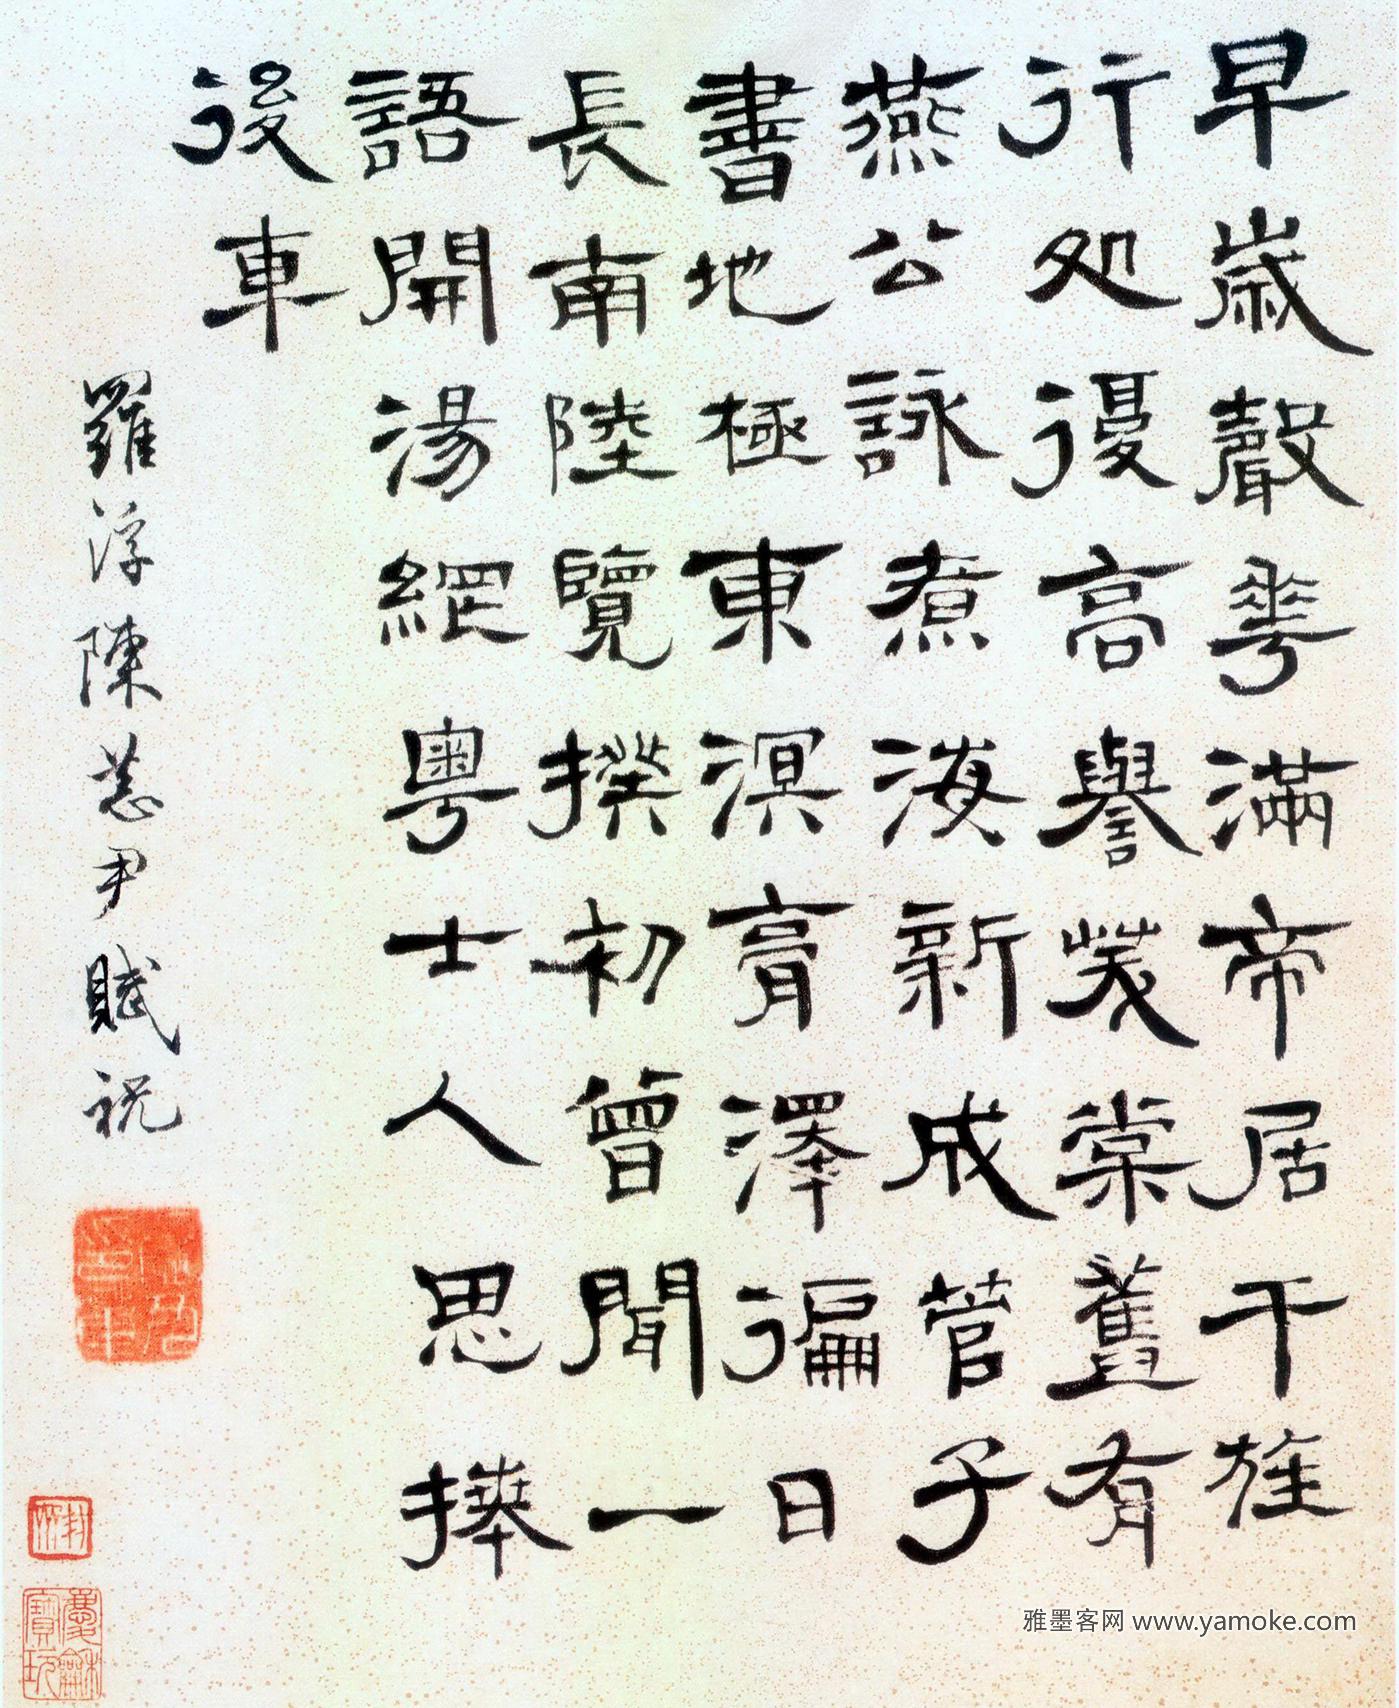 早歲聲華滿帝居干旌
行処優高譽茇棠舊有
燕公詠煮海新成管子
書地極東溟膏澤徧日
長南陸覽揆初曾聞一
語開湯網粵士人思捧
後車
羅浮陳恭尹賦祝
雅墨客网 www.yamoke.com